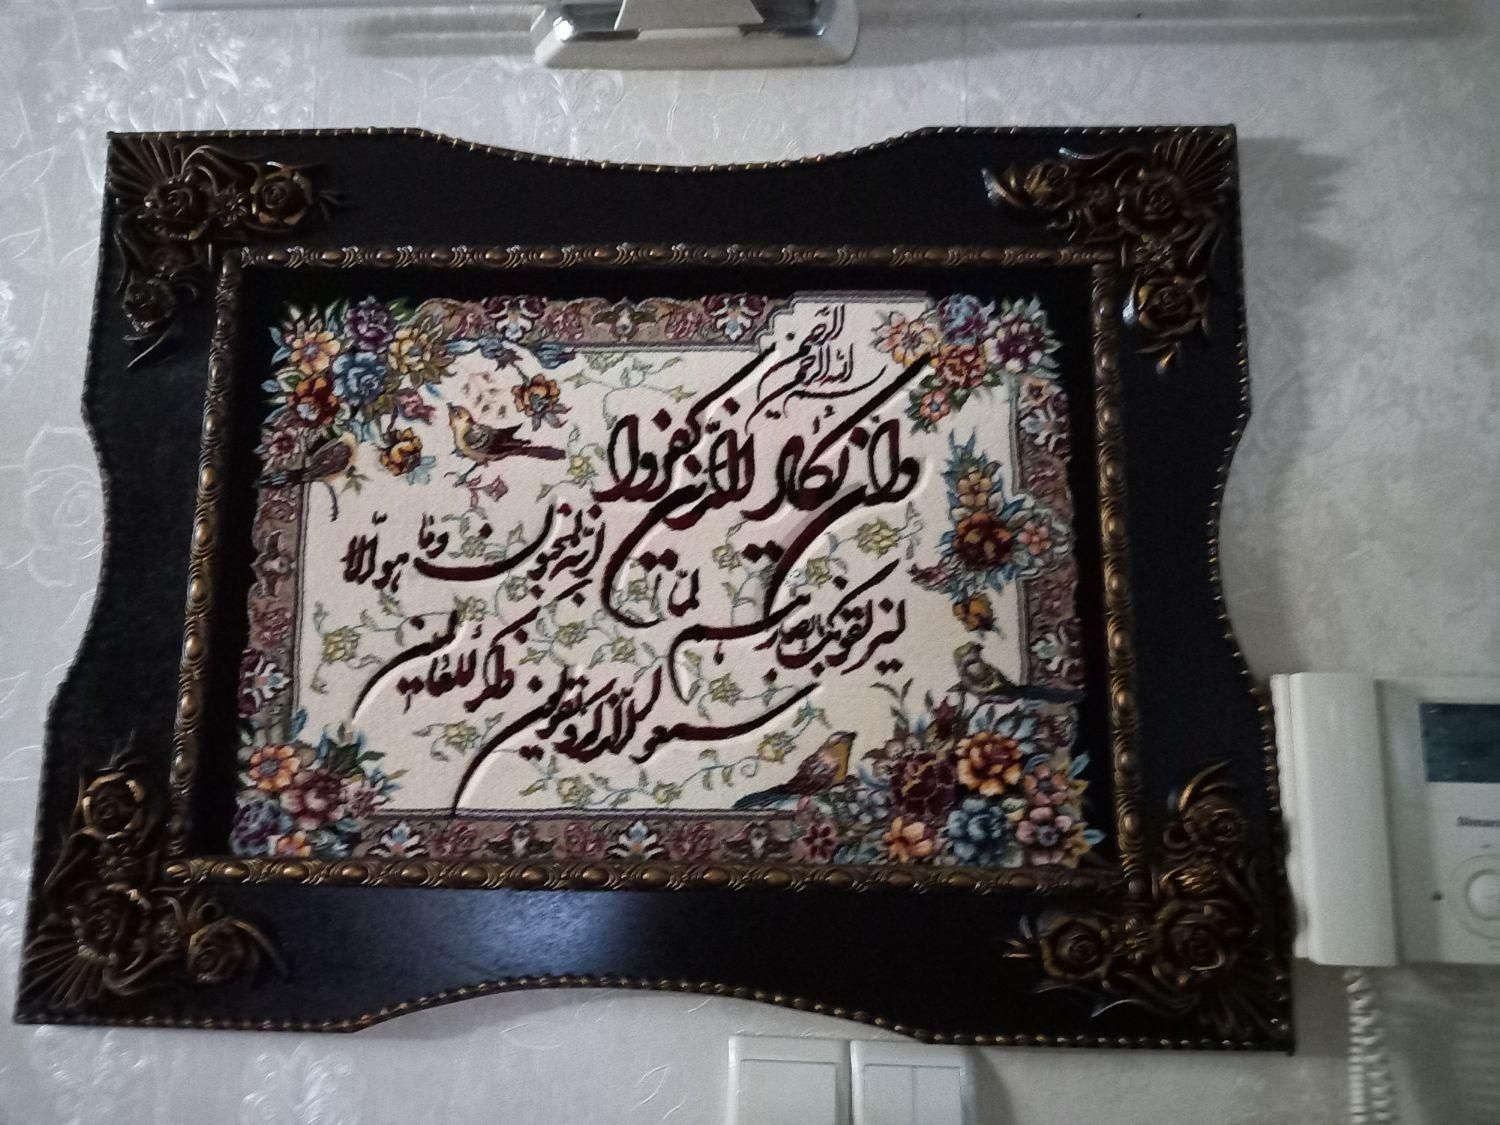 بسم الله الرحمن الرحیم
وان یکاد الذین کفروا
لیزلقونک بابصارهم لما
سمعوا الذکر ویقولون
انه لمجنون وما هو الا
ذکر للعالمین